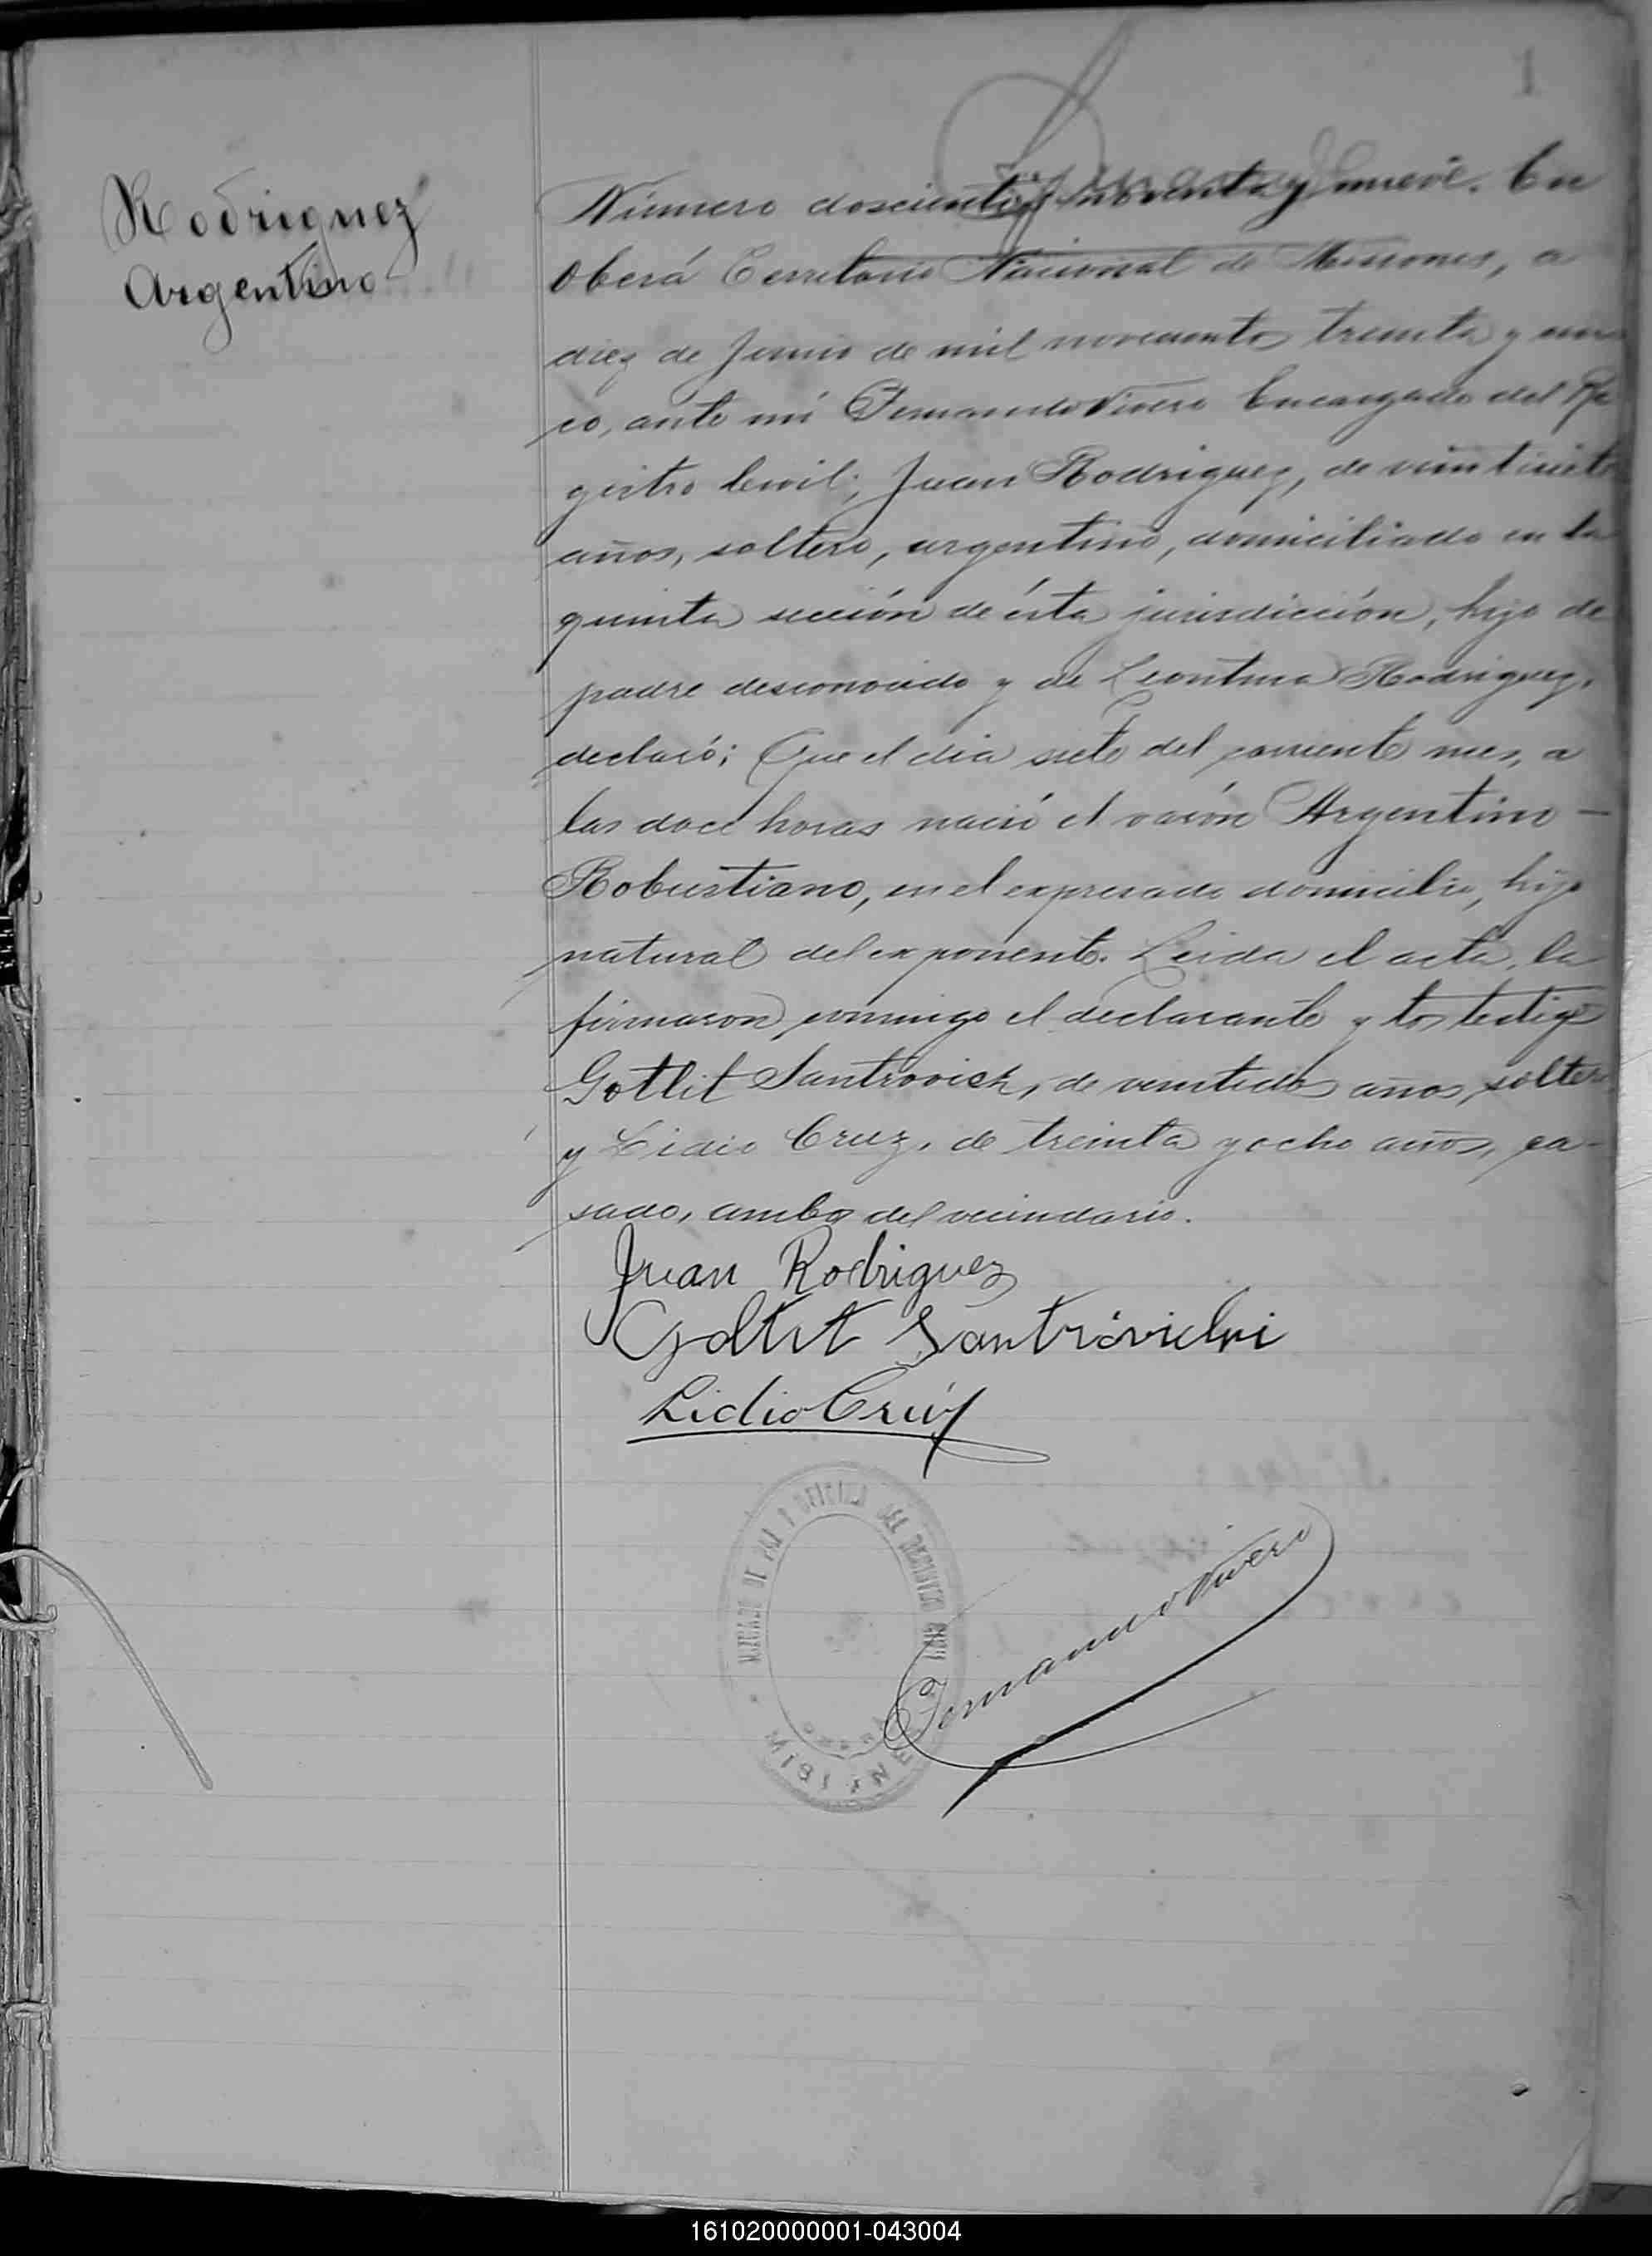 1
Rodriguez
Argentino
Número doscientos noventa y nueve. En
Oberá Territorio Nacional de Misiones, a
diez de Junio de mil novecientos treinta y cin
co, ante mi Fernando Vivero Encargado del Re
gistro Civil; Juan Rodriguez, de veintisiete
años, soltero, argentino, domiciliado en la
quinta sección de ésta jurisdicción, hijo de
padre desconocido y de Leontina Rodriguez,
declaró; Que el dia siete del corriente mes, a
las doce horas nació el varón Argentino —
Robustiano, en el expresado domicilio, hijo
natural del exponente. Leida el acta, la
firmaron conmigo el declarante y los testigos
Gotlit Santrovich, de veintidos años, soltero
y Lidio Cruz, de treinta y ocho años, ca-
sado, ambos del vecindario.
Juan Rodriguez
Gotlit
Lidio Cruz
JUZGADO DE PAZ Y OFICINA DEL REGISTRO CIVIL
OBERA
MISIONES
Fernando Vivero
161020000001-043004